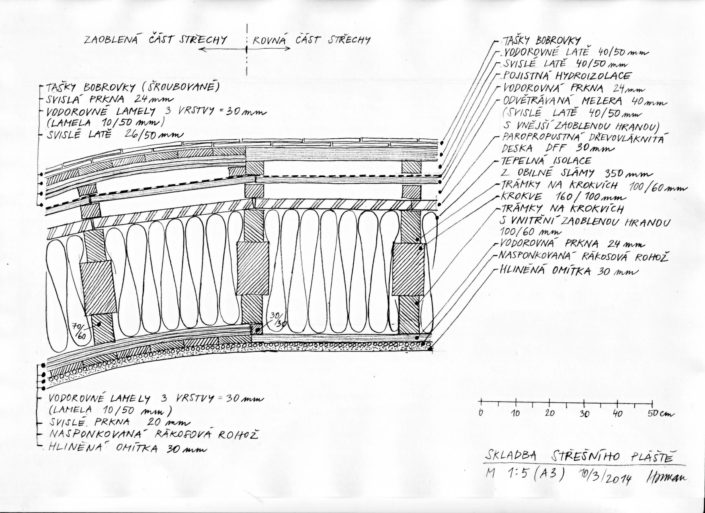 ZAOBLENÁ ČÁST STŘECHY
ROVNÁ ČÁST STŘECHY
TAŠKY BOBROVKY (ŠROUBOVANÉ)
SVISLÁ PRKNA 24 mm
VODOROVNÉ LAMELY 3 VRSTVY = 30 mm
(LAMELA 10/50 mm)
SVISLÉ LATĚ 26/50 mm
TAŠKY BOBROVKY
VODOROVNÉ LATĚ 40/50 mm
SVISLÉ LATĚ 40/50 mm
POJISTNÁ HYDROIZOLACE
VODOROVNÁ PRKNA 24 mm
ODVĚTRÁVANÁ MEZERA 40 mm
(SVISLÉ LATĚ 40/50 mm
S VNĚJŠÍ ZAOBLENOU HRANOU)
PAROPROPUSTNÁ DŘEVOVLÁKNITÁ
DESKA DFF 30 mm
TEPELNÁ ISOLACE
Z OBILNÉ SLÁMY 350 mm
TRÁMKY NA KROKVÍCH 100/60 mm
KROKVE 160/100 mm
TRÁMKY NA KROKVÍCH
S VNITŘNÍ ZAOBLENOU HRANOU
100/60 mm
VODOROVNÁ PRKNA 24 mm
NASPONKOVANÁ RÁKOSOVÁ ROHOŽ
HLINĚNÁ OMÍTKA 30 mm
70/60
30/30
VODOROVNÉ LAMELY 3 VRSTVY = 30 mm
(LAMELA 10/50 mm)
SVISLÉ PRKNA 20 mm
NASPONKOVANÁ RÁKOSOVÁ ROHOŽ
HLINĚNÁ OMÍTKA 30 mm
0 10 20 30 40 50 cm
SKLADBA STŘEŠNÍHO PLÁŠTĚ
M 1:5 (A3) 10/3/2014